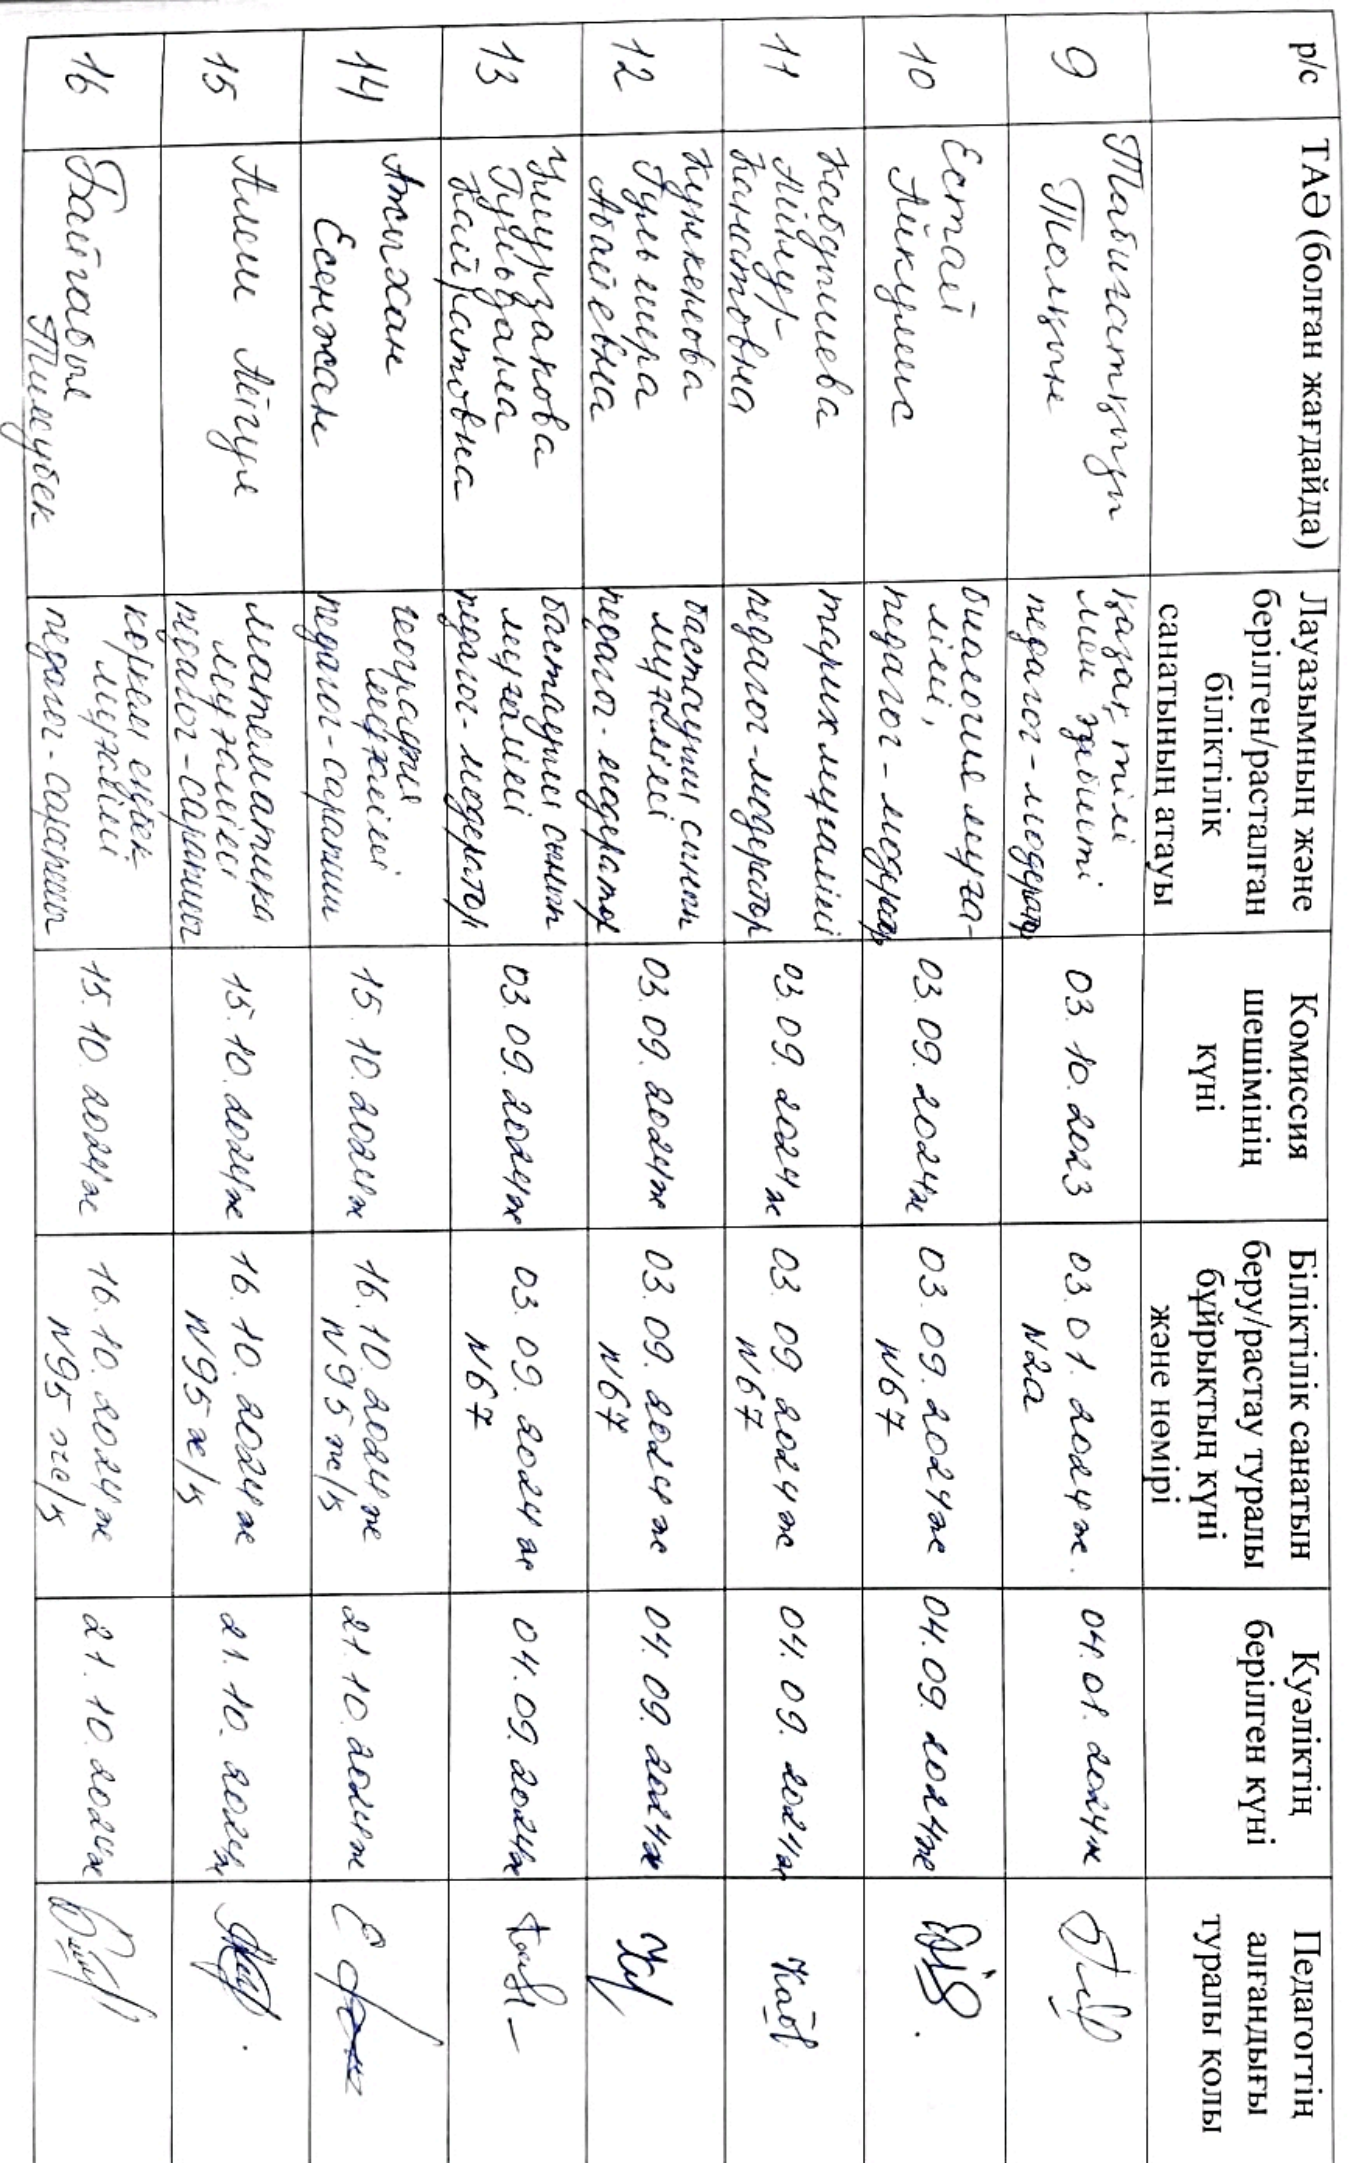 р/с
ТАӘ (болған жағдайда)
Лауазымның және
берілген/расталған
біліктілік
санатының атауы
Комиссия
шешімінің
күні
Біліктілік санатын
беру/растау туралы
бұйрықтың күні
және нөмірі
Куәліктің
берілген күні
Педагогтің
алғандығы
туралы қолы
9
Табиғатқызы
Толқын
қазақ тілі
мен әдебиеті
педагог-модератор
03.10.2023
03.01.2024ж.
N2а
04.01.2024ж
10
Естай
Айкумис
биология мұға-
лімі,
педагог-модератор
03.09.2024ж
03.09.2024ж
N67
04.09.2024ж
11
Кабдышева
Айнур
Канатовна
тарих мұғалімі
педагог-модератор
03.09.2024ж
03.09.2024ж
N67
04.09.2024ж
12
Кункенова
Гульшера
Абаевна
бастауыш сынып
мұғалімі
педагог-модератор
03.09.2024ж
03.09.2024ж
N67
04.09.2024ж
13
Умурзакова
Гульдана
Кайратовна
бастауыш сынып
мұғалімі
педагог-модератор
03.09.2024ж
03.09.2024ж
N67
04.09.2024ж
14
Ажыхан
Есенжан
география
мұғалімі
педагог-сарапшы
15.10.2024ж
16.10.2024ж
N95 ж/қ
21.10.2024ж
15
Алем Айгул
математика
мұғалімі
педагог-сарапшы
15.10.2024ж
16.10.2024ж
N95 ж/қ
21.10.2024ж
16
Байгабыл
Тимубек
көркем еңбек
мұғалімі
педагог-сарапшы
15.10.2024ж
16.10.2024ж
N95 ж/қ
21.10.2024ж